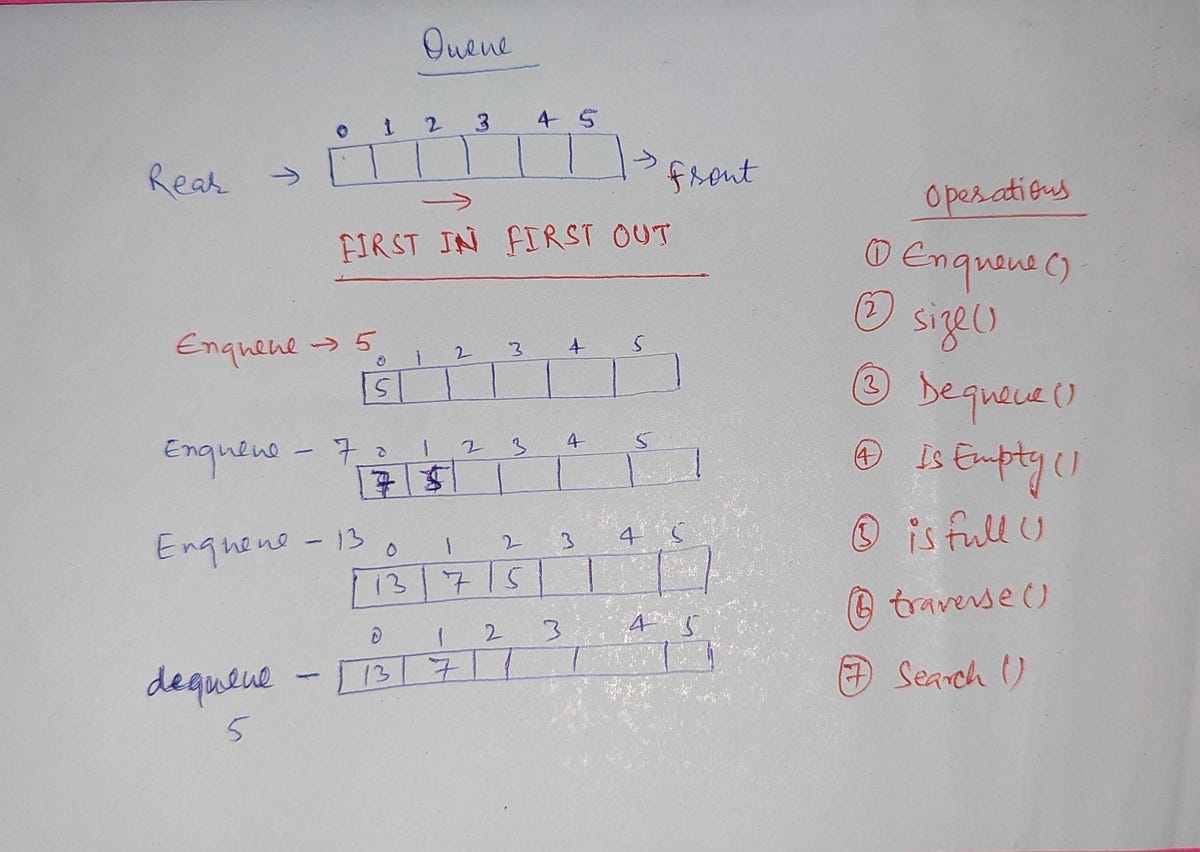 Queue
0 1 2 3 4 5
Rear → → front
→
FIRST IN FIRST OUT
Enqueue → 5
0 1 2 3 4 5
5
Enqueue - 7
0 1 2 3 4 5
7 5
Enqueue - 13
0 1 2 3 4 5
13 7 5
0 1 2 3 4 5
dequeue - 13 7
5
Operations
① Enqueue()
② size()
③ Dequeue()
④ Is Empty()
⑤ is full()
⑥ traverse()
⑦ Search()